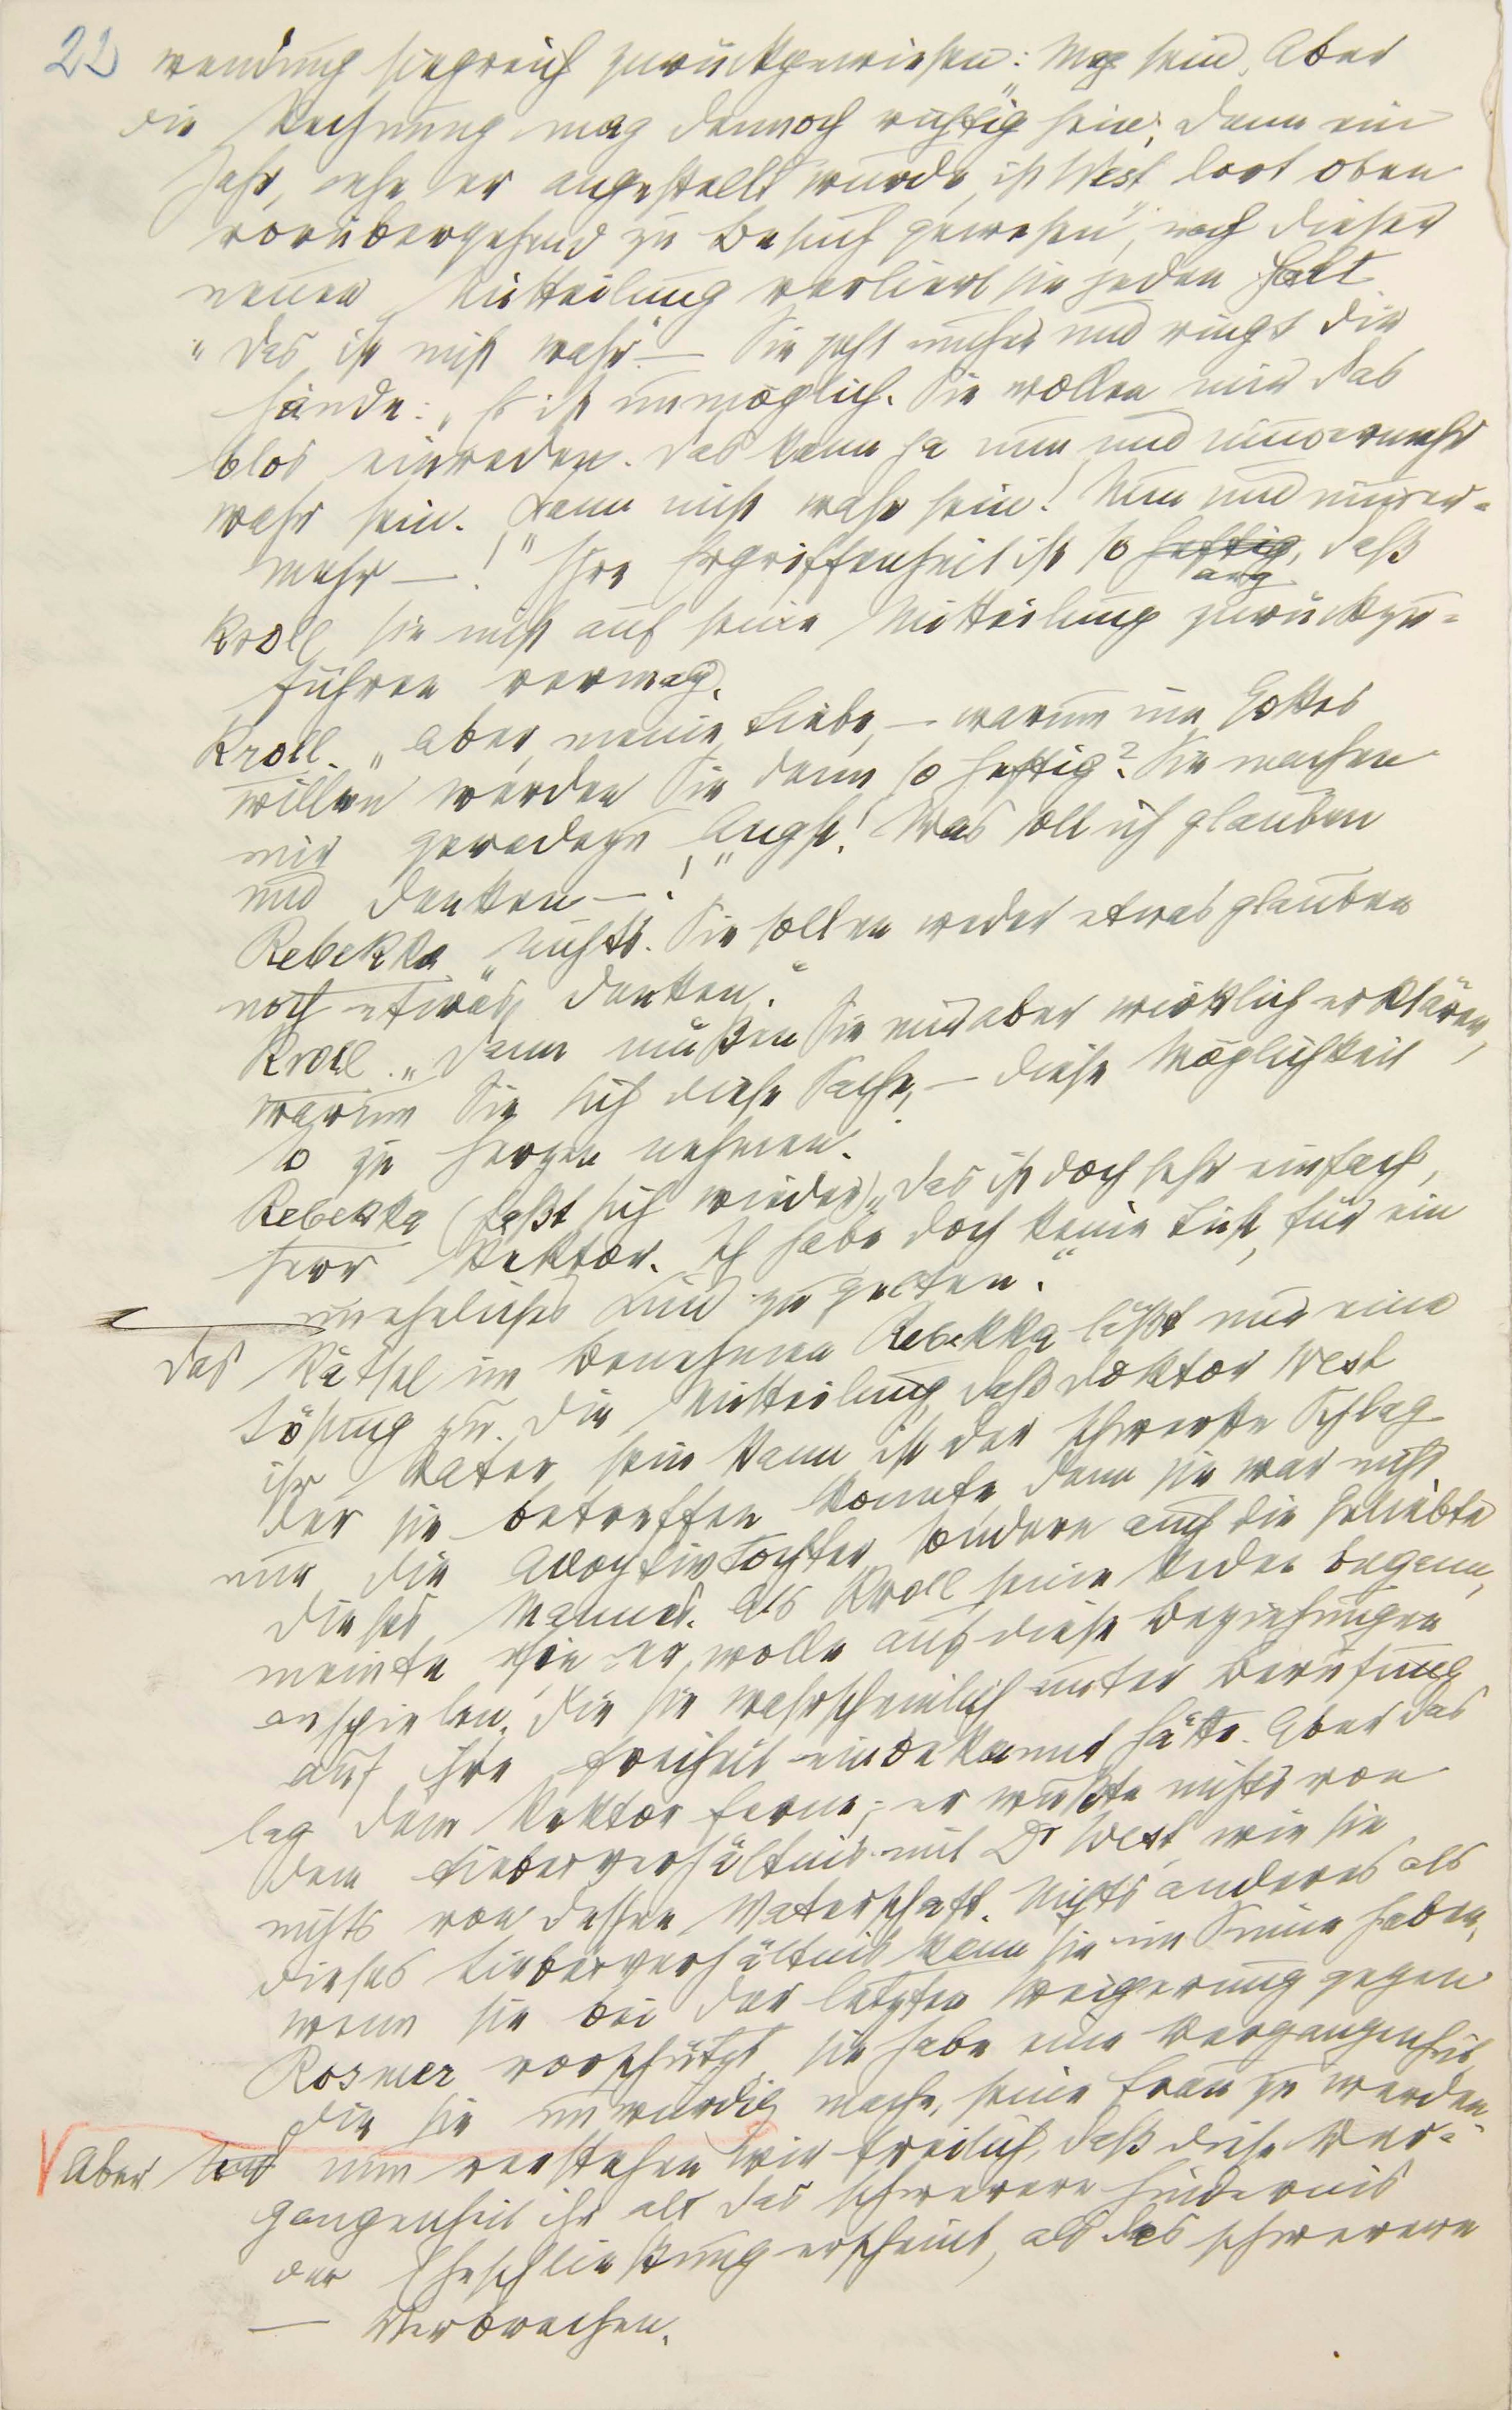 22 wendung siegreich zurückgewiesen: Mag sein. Aber
die Rechnung mag dennoch richtig sein; denn ein
Jahr, ehe er angestellt wurde, ist West dort oben
vorübergehend zu Besuch gewesen", nach dieser
neuen Mitteilung verliert sie jeden Halt.
"Das ist nicht wahr" — Sie geht umher und ringt die
Hände: „Es ist unmöglich. Sie wollen mir das
blos einreden. Das kann ja nun und nimmermehr
wahr sein. Kann nicht wahr sein! Nun und nimmer-
mehr —!" Ihre Ergriffenheit ist so heftig, daß
arg
Kroll sie nicht auf seine Mitteilung zurückzu-
führen vermag.
Kroll. „Aber, meine Liebe, — warum um Gottes
willen werden Sie denn so heftig? Sie machen
mir geradezu Angst! Was soll ich glauben
und denken —!"
Rebekka „Nichts. Sie sollen weder etwas glauben
noch etwas denken."
Kroll. „Dann müßen Sie mir aber wirklich erklären,
warum Sie sich diese Sache, — diese Möglichkeit
so zu Herzen nehmen.
Rebekka (faßt sich wieder) „Das ist doch sehr einfach,
Herr Rektor. Ich habe doch keine Lust, für ein
uneheliches Kind zu gelten."
Das Rätsel im Benehmen Rebekka läßt nur eine
Lösung zu. Die Mitteilung, daß Doktor West
ihr Vater sein kann ist der schwerste Schlag
der sie betreffen konnte, denn sie war nicht
nur die Adoptivtochter sondern auch die Geliebte
dieses Mannes. Als Kroll seine Reden begann,
meinte sie er wolle auf diese Beziehungen
anspielen, die sie wahrscheinlich unter Berufung
auf ihre Freiheit einbekannt hätte. Aber das
lag dem Rektor ferne; er wußte nichts von
dem Liebesverhältnis mit Dr West, wie sie
nichts von dessen Vaterschaft. Nichts anderes als
dieses Liebesverhältnis kann sie im Sinne haben,
wenn sie bei der letzten Weigerung gegen
Rosmer vorschützt sie habe eine Vergangenheit,
die sie unwürdig mache, seine Frau zu werden.
Aber nun verstehen wir freilich, daß diese Ver-
gangenheit ihr als das schwerere Hindernis
der Eheschließung erscheint, als das schwerere
— Verbrechen.